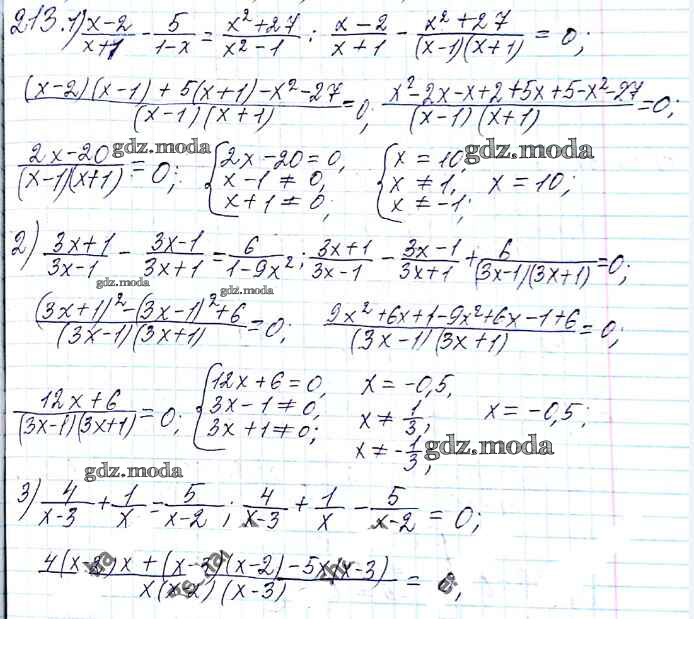 213. 1) (x-2)/(x+1) - 5/(1-x) = (x²+27)/(x²-1); (x-2)/(x+1) - (x²+27)/((x-1)(x+1)) = 0;
((x-2)(x-1)+5(x+1)-x²-27)/((x-1)(x+1)) = 0; (x²-2x-x+2+5x+5-x²-27)/((x-1)(x+1)) = 0;
gdz.moda gdz.moda
(2x-20)/((x-1)(x+1)) = 0; { 2x-20=0, x-1≠0, x+1≠0; { x=10, x≠1, x≠-1; x=10;
2) (3x+1)/(3x-1) - (3x-1)/(3x+1) = 6/(1-9x²); (3x+1)/(3x-1) - (3x-1)/(3x+1) + 6/((3x-1)(3x+1)) = 0;
gdz.moda gdz.moda
((3x+1)²-(3x-1)²+6)/((3x-1)(3x+1)) = 0; (9x²+6x+1-9x²+6x-1+6)/((3x-1)(3x+1)) = 0;
(12x+6)/((3x-1)(3x+1)) = 0; { 12x+6=0, 3x-1≠0, 3x+1≠0; x=-0,5, x≠1/3, x≠-1/3; x=-0,5;
gdz.moda
gdz.moda
3) 4/(x-3) + 1/x = 5/(x-2); 4/(x-3) + 1/x - 5/(x-2) = 0;
(4(x-2)x+(x-3)(x-2)-5x(x-3))/(x(x-2)(x-3)) = 0;